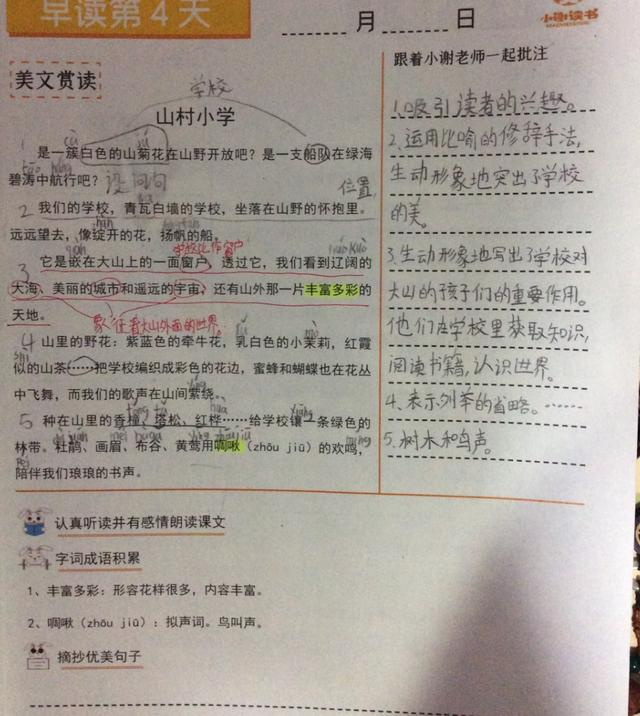 早读第4天
月 日
小谢读书
美文赏读
学校
山村小学
1 是一簇白色的山菊花在山野开放吧？是一支船队在绿海
碧涛中航行吧？
设问句
位置
2 我们的学校，青瓦白墙的学校，坐落在山野的怀抱里。
远远望去，像绽开的花，扬帆的船。
学校比作窗户
3 它是嵌在大山上的一面窗户，透过它，我们看到辽阔的
大海、美丽的城市和遥远的宇宙，还有山外那一片丰富多彩的
天地。
象征着大山外面的世界
4 山里的野花：紫蓝色的牵牛花，乳白色的小茉莉，红霞
似的山茶……把学校编织成彩色的花边，蜜蜂和蝴蝶也在花丛
中飞舞，而我们的歌声在山间萦绕。
5 种在山里的香樟、塔松、红桦……给学校镶一条绿色的
林带。杜鹃、画眉、布谷、黄莺用啁啾（zhōu jiū）的欢鸣，
陪伴我们琅琅的书声。
跟着小谢老师一起批注
1.吸引读者的兴趣。
2.运用比喻的修辞手法，
生动形象地突出了学校
的美。
3.生动形象地写出了学校对
大山的孩子们的重要作用。
他们在学校里获取知识，
阅读书籍，认识世界。
4、表示列举的省略。……
5.树木和鸟声。
认真听读并有感情朗读课文
字词成语积累
1、丰富多彩：形容花样很多，内容丰富。
2、啁啾（zhōu jiū）：拟声词。鸟叫声。
摘抄优美句子